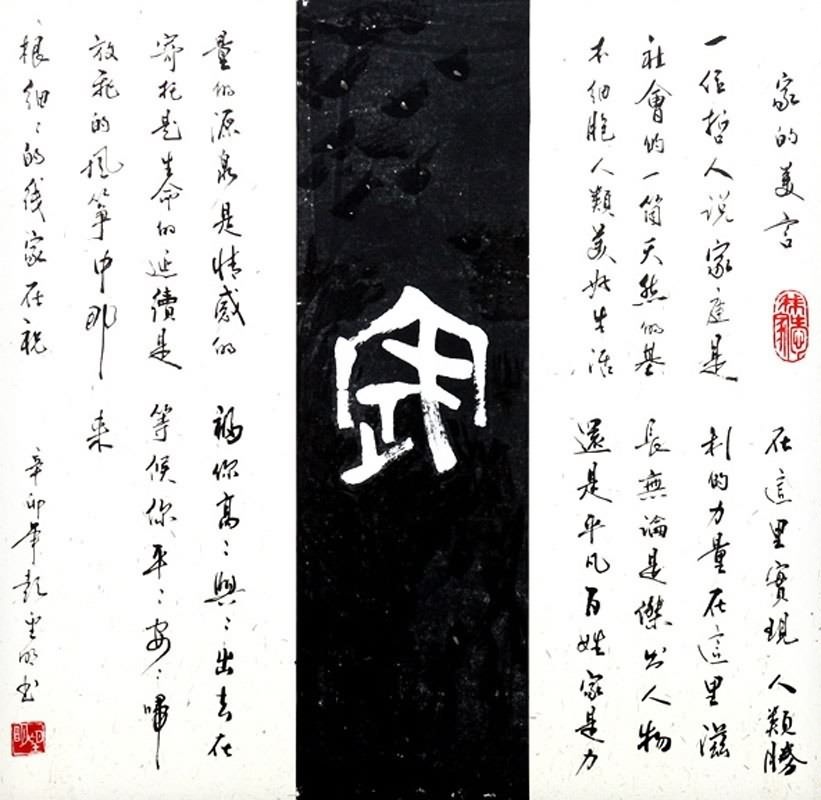 家的美言
一位哲人说家庭是
社會的一箇天然的基
本细胞人類美好生活
在這里實現人類勝
利的力量在這里滋
長無論是傑出人物
還是平凡百姓家是力
家
量的源泉是情感的
寄托是生命的延續是
放飛的風筝中那一
根细〻的线家在祝
福你高〻興〻出去在
等候你平〻安〻歸
来
辛卯年彭明书